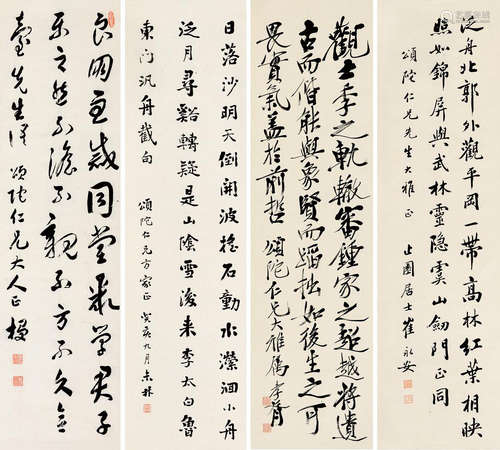 泛舟北郭外觀平岡一帶高林紅葉相映
照如錦屏與武林靈隱虞山劍門正同
頌陀仁兄先生大雅正 止園居士崔永安
觀士季之軌轍審鍾家之谿越將遺
古而偕能與象賢而蹈拙如後生之可
畏實氣蓋於前哲 頌陀仁兄大雅屬 孝胥
日落沙明天倒開波搖石動水瀠洄小舟
泛月尋谿轉疑是山陰雪後來李太白魯
東門汎舟截句 頌陀仁兄方家正 癸亥九月
同堂 學君子
不 不方不久
先生 頌陀仁兄大人正